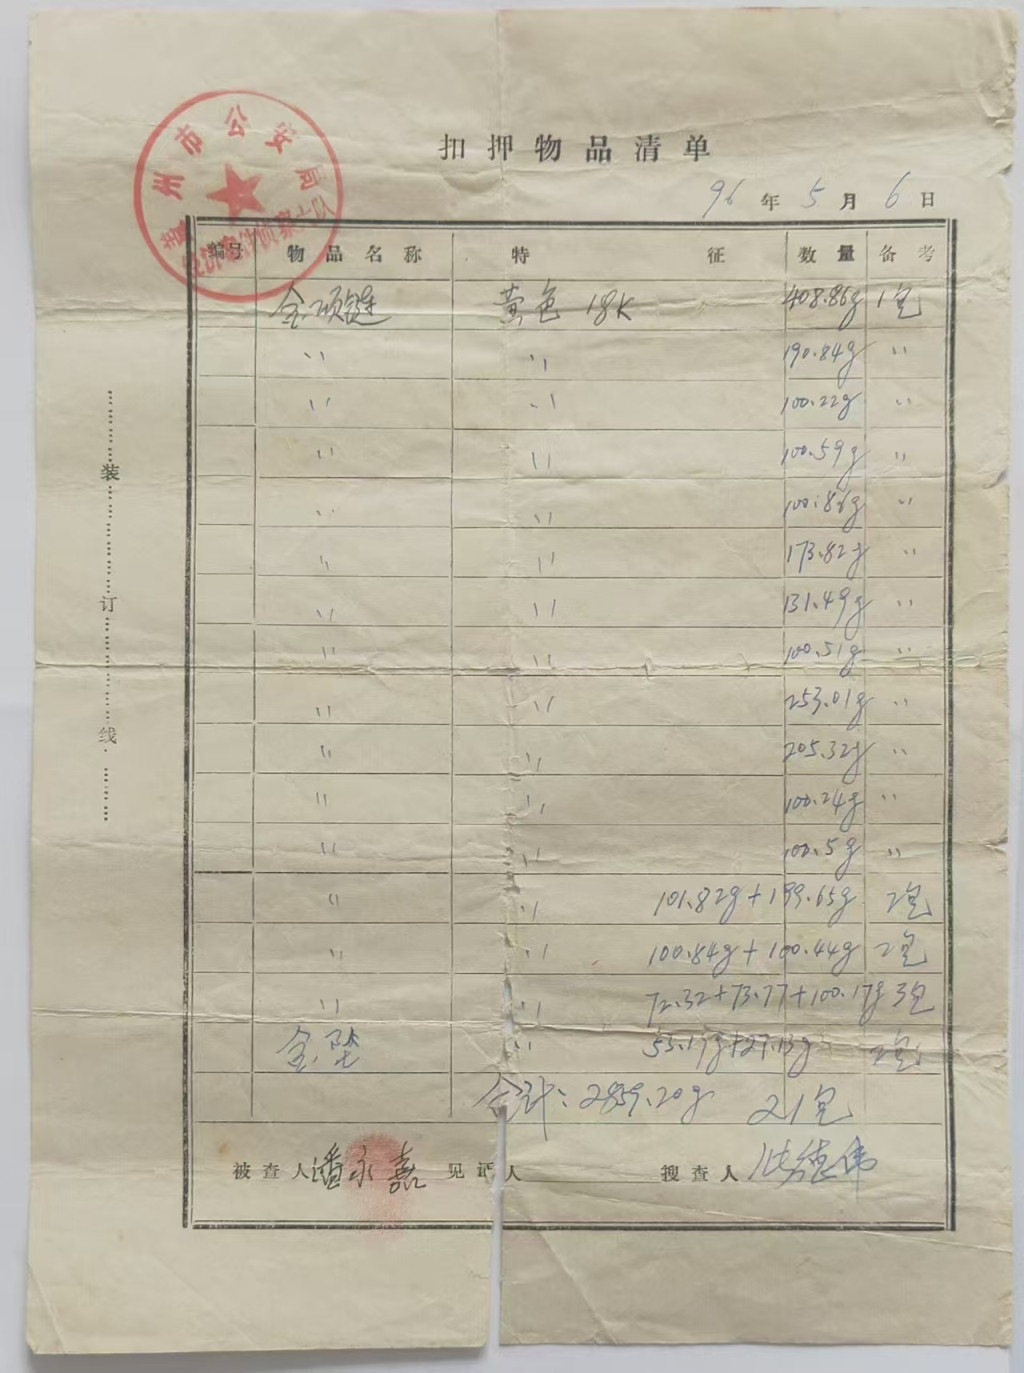 扣押物品清单
州市公安局
96年5月6日
编号 物品名称 特征 数量 备考
金项链 黄色 18K 408.86g 1包
〃 〃 190.84g 〃
〃 〃 100.22g 〃
〃 〃 100.59g 〃
〃 〃 100.86g 〃
〃 〃 173.82g 〃
〃 〃 131.49g 〃
〃 〃 100.51g 〃
〃 〃 253.01g 〃
〃 〃 205.32g 〃
〃 〃 100.24g 〃
〃 〃 100.5g 〃
〃 〃 101.82g+199.65g 2包
〃 〃 100.84g+100.44g 2包
〃 〃 72.32+73.77+100.17g 3包
金坠 〃 2包
合计：2859.20g 21包
被查人 潘永嘉 见证人 搜查人
装订线